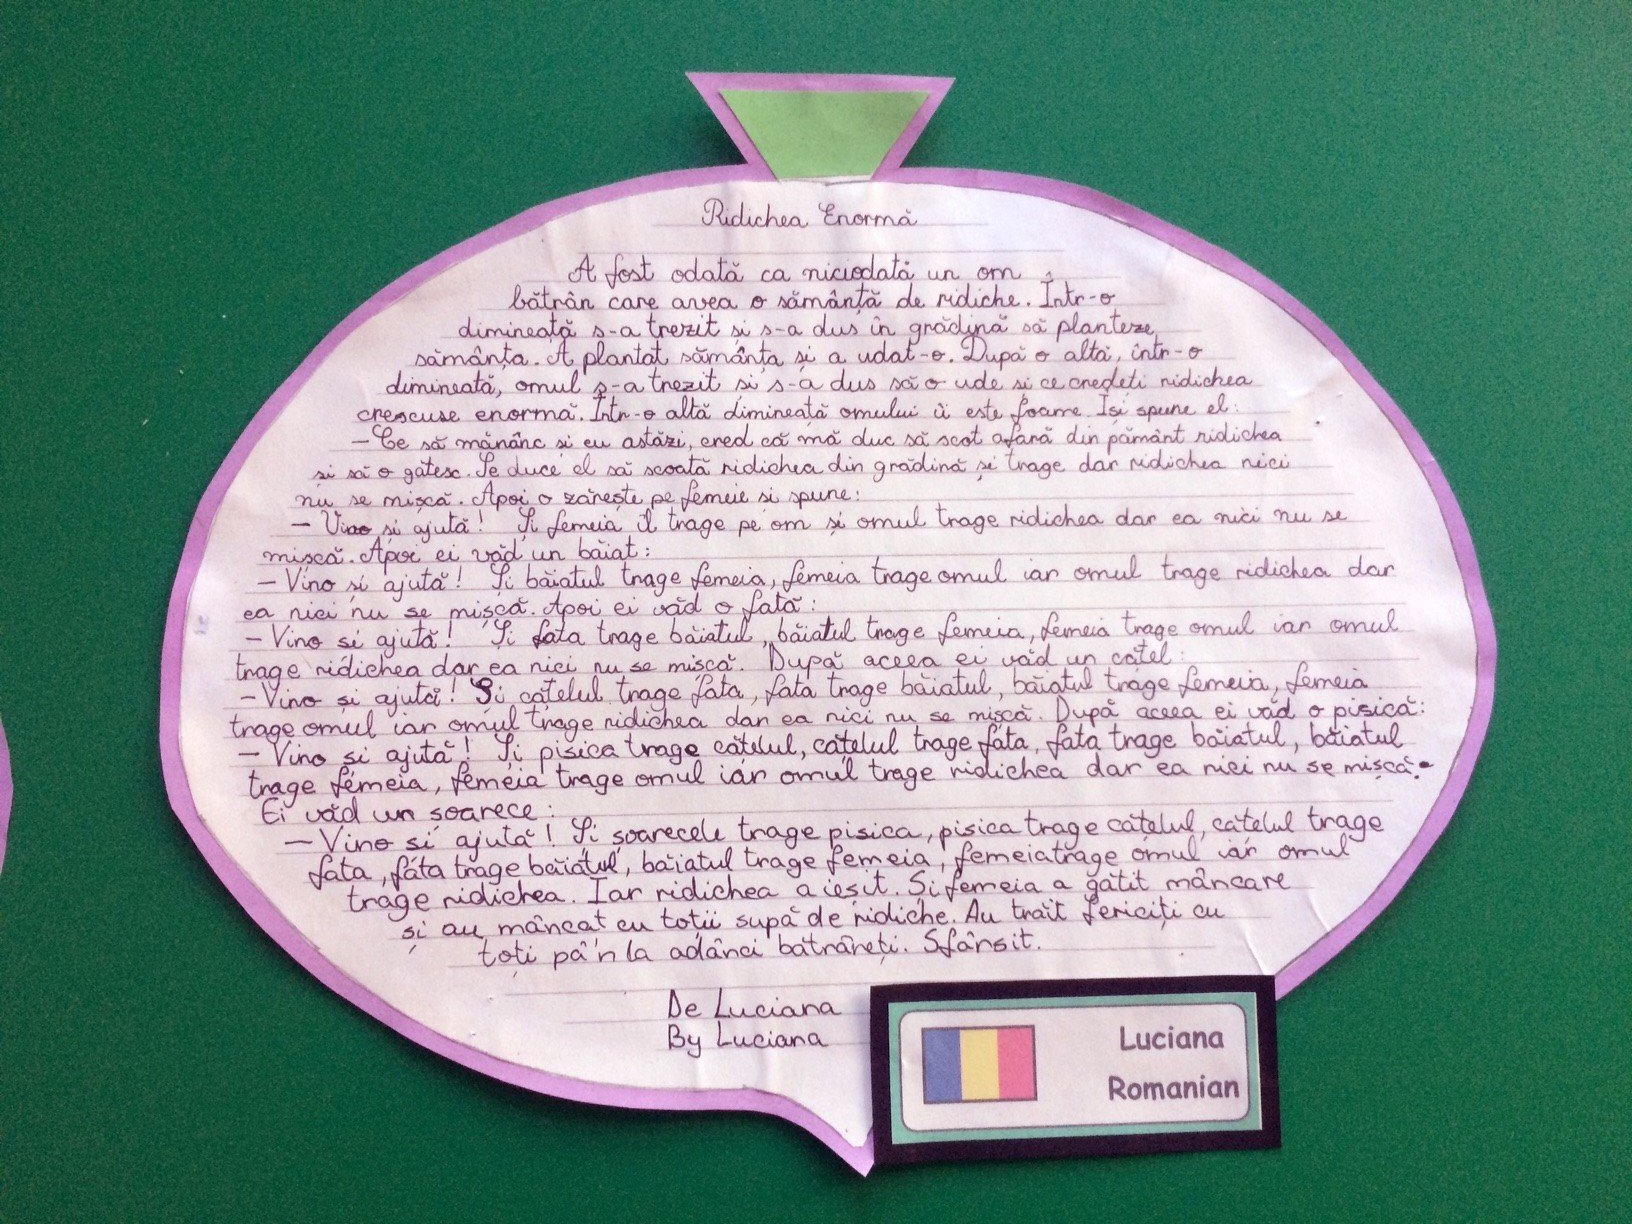 Ridichea Enormă
A fost odată ca niciodată un om
bătrân care avea o sământă de ridiche. Într-o
dimineață s-a trezit și s-a dus în grădină să planteze
sămânța. A plantat sămânța și a udat-o. După o altă, într-o
dimineată, omul s-a trezit și s-a dus să o ude si ce credeti ridichea
crescuse enormă. Într-o altă dimineață omului îi este foame. Iși spune el:
– Ce să mănânc si eu astăzi, cred că mă duc să scot afară din pământ ridichea
si să o gătesc. Se duce el să scoată ridichea din grădină și trage dar ridichea nici
nu se mișcă. Apoi o zărește pe femeie si spune:
– Vino si ajută! Și femeia îl trage pe om și omul trage ridichea dar ea nici nu se
mișcă. Apoi ei văd un băiat:
– Vino si ajută! Și băiatul trage femeia, femeia trage omul iar omul trage ridichea dar
ea nici nu se mișcă. Apoi ei văd o fată:
– Vino si ajută! Și fata trage băiatul, băiatul trage femeia, femeia trage omul iar omul
trage ridichea dar ea nici nu se mișcă. După aceea ei văd un cațel:
– Vino și ajută! Și cățelul trage fata, fata trage băiatul, băiatul trage femeia, femeia
trage omul iar omul trage ridichea dar ea nici nu se mișcă. După aceea ei văd o pisică:
– Vino și ajută! Și pisica trage cățelul, cățelul trage fata, fata trage băiatul, băiatul
trage femeia, femeia trage omul iar omul trage ridichea dar ea nici nu se mișcă.
Ei văd un soarece:
– Vino si ajută! Și șoarecele trage pisica, pisica trage cățelul, cățelul trage
fata, fata trage băiatul, băiatul trage femeia, femeia trage omul iar omul
trage ridichea. Iar ridichea a ieșit. Și femeia a gătit mâncare
și au mâncat cu toții supă de ridiche. Au trăit fericiți cu
toți pâ'n la adânci bătrâneți. Sfârsit.
De Luciana
By Luciana
Luciana
Romanian